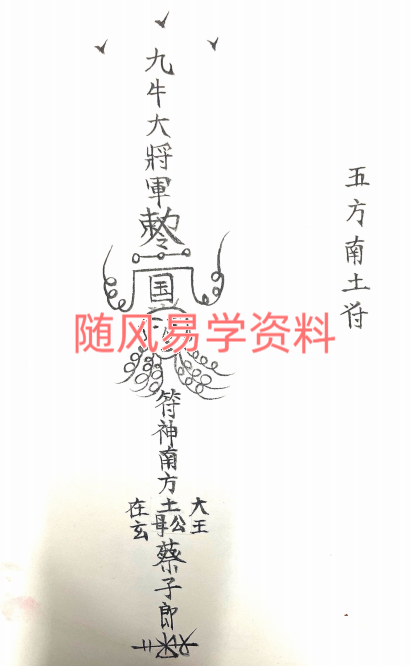 五方南土符
九牛大將軍
敕令
国
随风易学资料
符神南方土
大王
公
母
在玄
蔡子郎